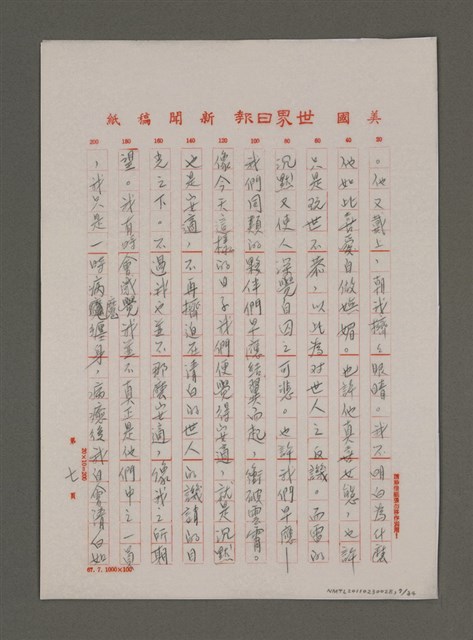 美國世界日報新聞稿紙
20 40 60 80 100 120 140 160 180 200
。他又戴上，朝我擠々眼睛。我不明白為什麼
他如此喜愛自做嫵媚。也許他真存女態，也許
只是玩世不恭，以此為對世人之自譏。而雷的
沉默又使人深覺自囚之可悲。也許我們早應—
我們同類的夥伴們早應結翼而起，衝破雲霄。
像今天這樣的日子我們便覺得安適，就是沉默
也是安適，不再擠迫在清白的世人的譏誚的目
光之下。不過我也並不那麼安適，像我之所期
望。我有時會感覺我並不真正是他們中之一員
，我只是一時病魘纏身，病癒後我自會清白如
第 七 頁
20×10=200
67.7.1000×100